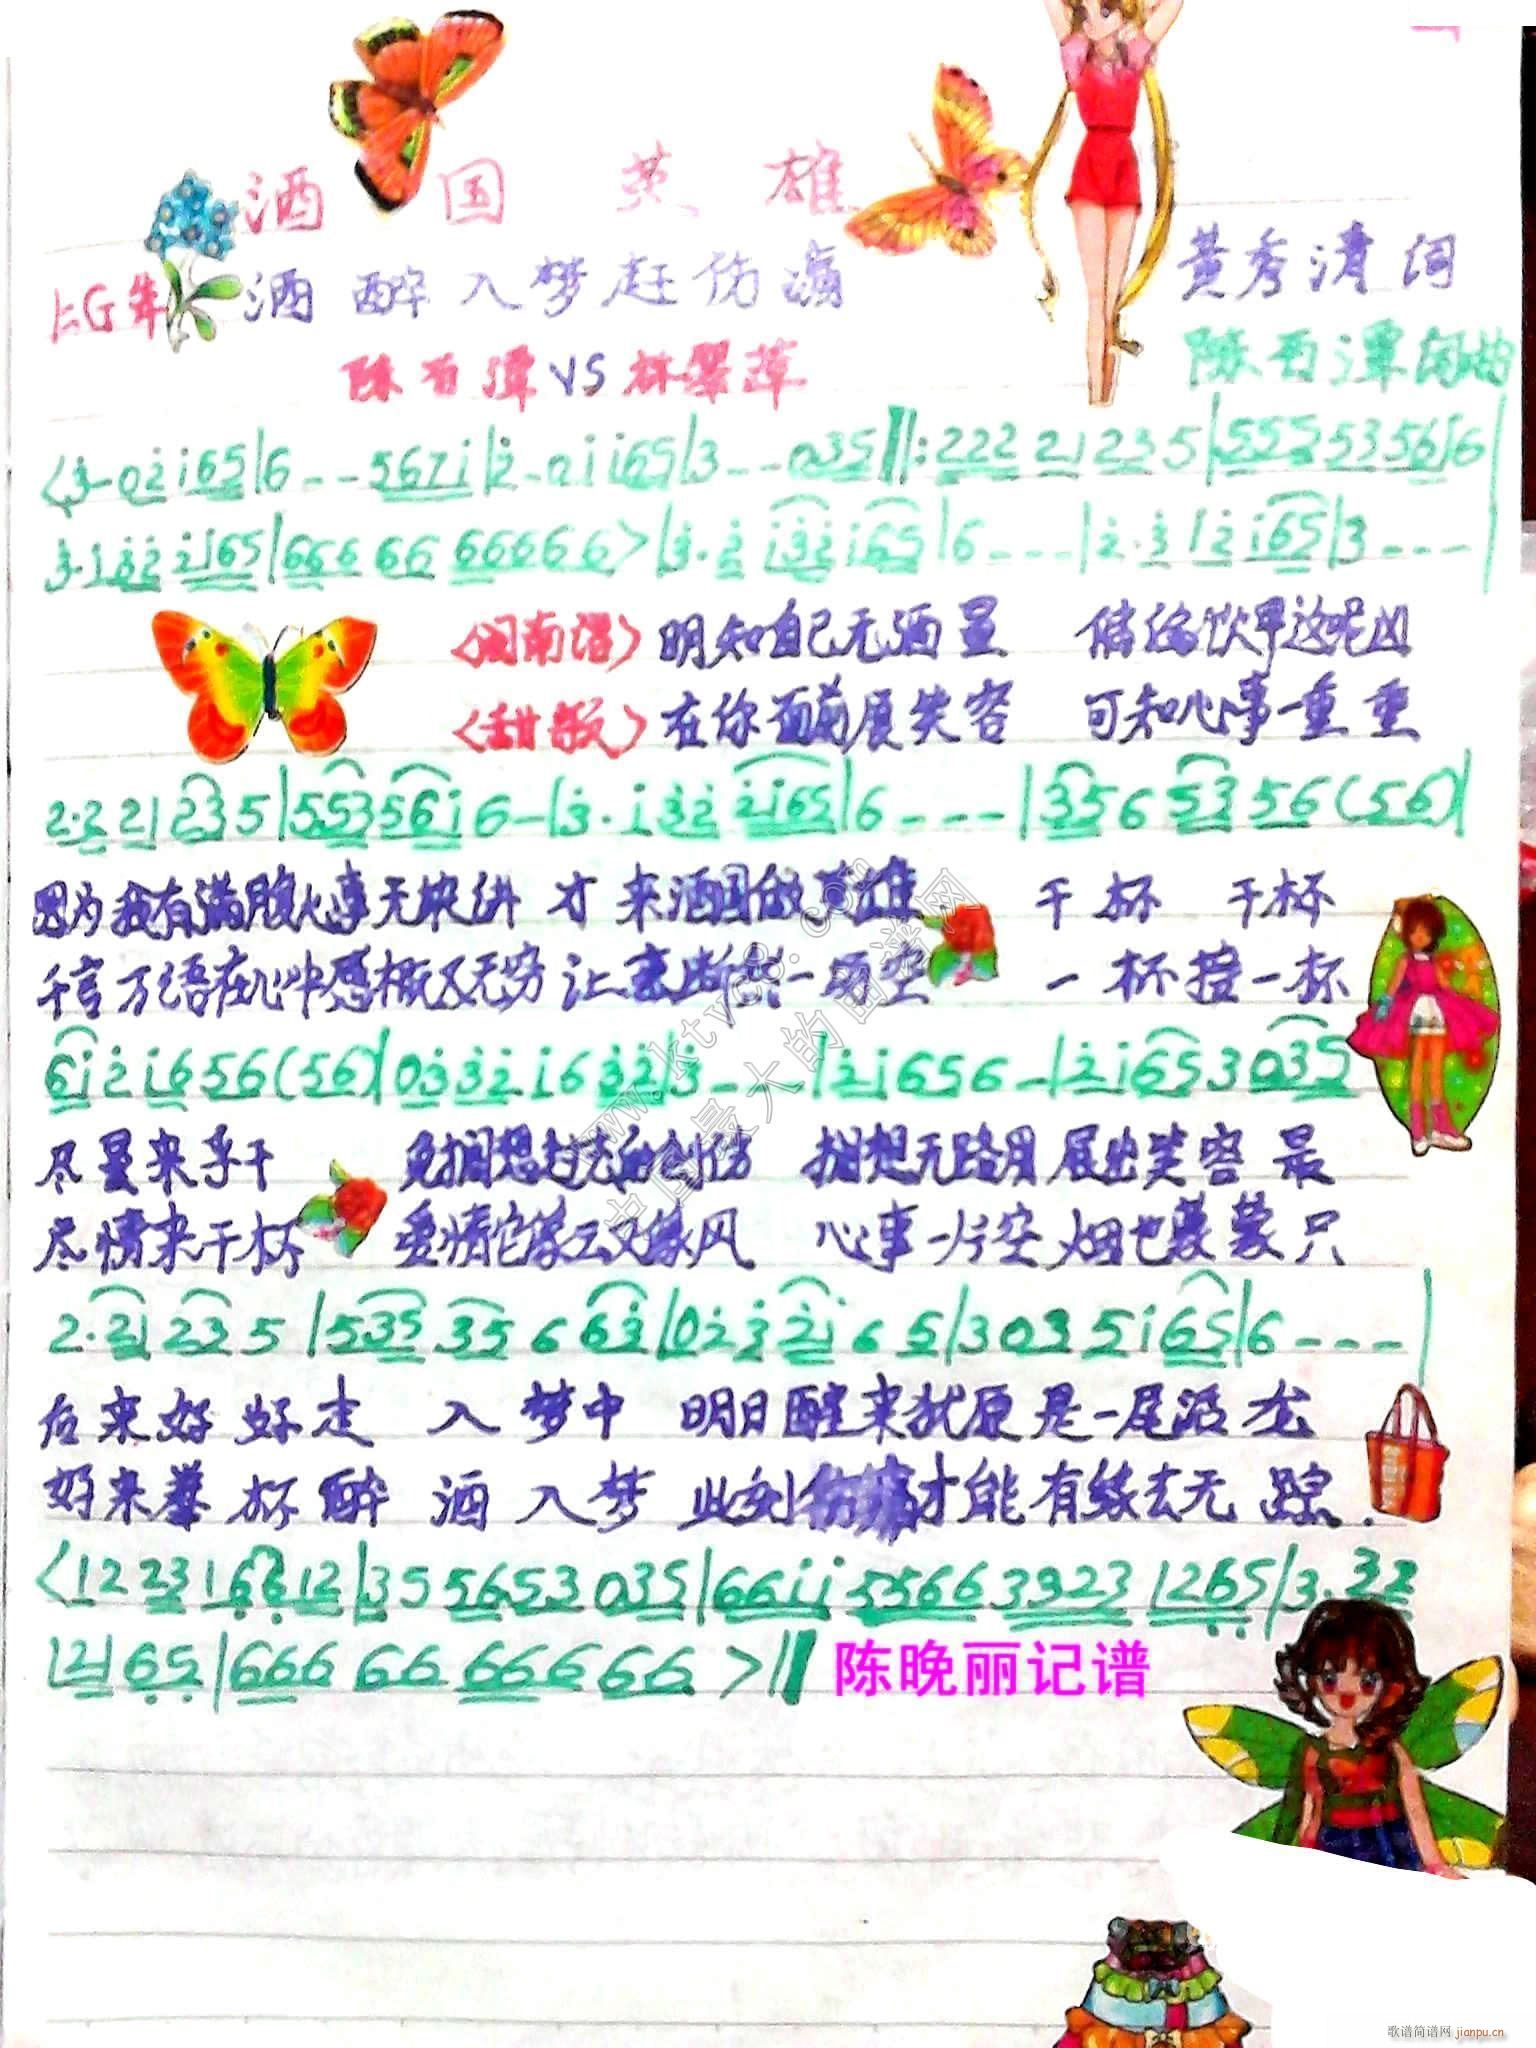 酒 国 英 雄
酒 醉 入 梦 赶 伤 痛
黄秀清词
陈百潭 VS 林翠萍
陈百潭
<3-02i65|6--5671|2-01165|3--035‖:222 21235|555535616
3·132 2165|666 66 66666>|3·2 132165|6---|2·3 12 i65|3---
<闽南语> 明知自己无酒量 偏偏饮
<甜歌> 在你面前展笑容 可知心事一重重
2·2 21 235|553561 6-|3·132 2165|6---|356 53 56(56)|
因为我有满腹心事无 讲 才 来酒国做英雄 干 杯 干杯
千言万语在心中感概及无穷 让 一场空 一 杯 接一杯
6i2i656(56)|0332i632|3--|2i656-|2i653035
尽量来 干 免 想过去的创伤 想无路用 展出笑容 最
尽情来干杯 爱情它像云又像风 心事一片空 烟也蒙蒙 只
2·21 235|535 35 6 63|023 21 6 5|3035i65|6---
后来好好走 入 梦中 明日醒来 原是一尾活龙
好来举 杯 醉 酒 入 梦 此刻伤痛才能有缘去无踪.
<12 23 16612|35 5653 035|66ii 5566 3323 1265|3·32
12165|666 66 66 6 66>‖
陈晚丽记谱
www.ktvc8.com
中国最大的曲谱网
歌谱简谱网 jianpu.cn